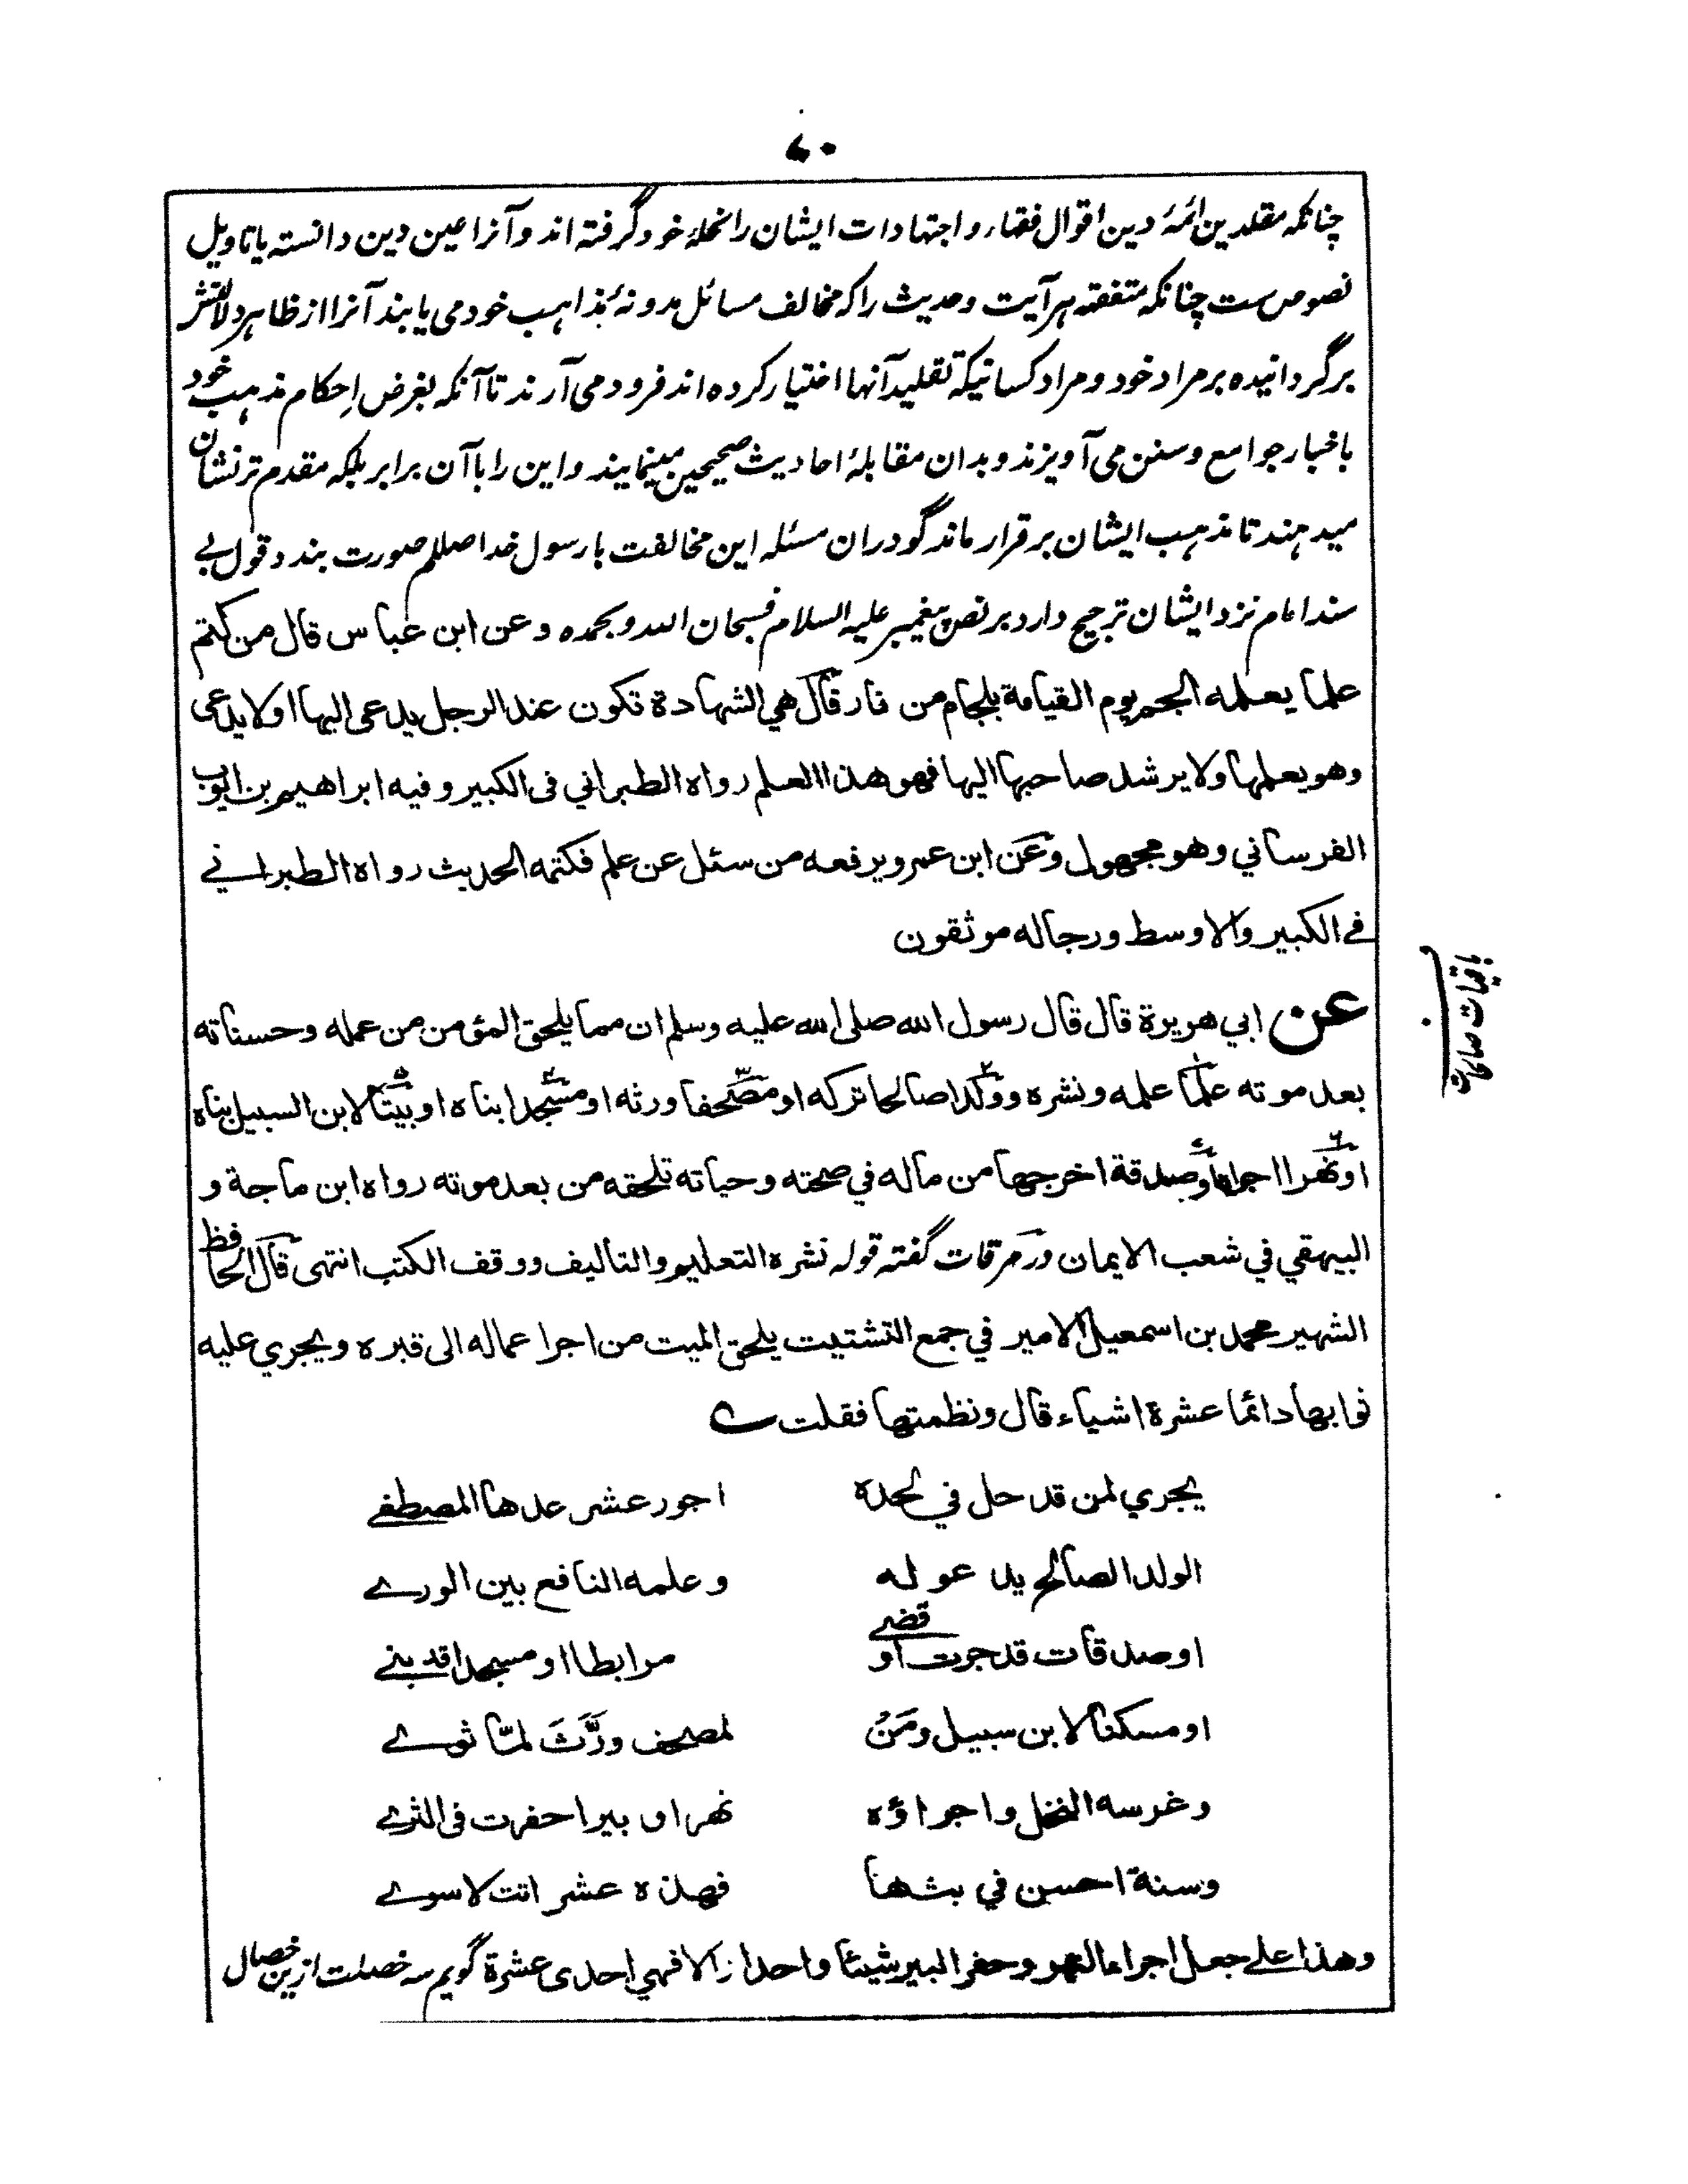 ۷۰
چنانکه مقلدین ائمۂ دین اقوال فقهاء و اجتهادات ایشان را نحلۂ خود گرفته اند و آنرا عین دین دانسته یا تاویل
نصوص ست چنانکه متفقهه هر آیت و حدیث را که مخالف مسائل مدونۂ مذاهب خود می یابند آنرا از ظاهر دلالتش
برگردانیده بر مراد خود و مراد کسانیکه تقلید آنها اختیار کرده اند فرود می آرند تا آنکه بغرض اِحکام مذهب خود
باخبار جوامع و سنن می آویزند و بدان مقابلۂ احادیث صحیحین مینمایند و این را با آن برابر بلکه مقدم تر نشان
میدهند تا مذهب ایشان برقرار ماند گو دران مسئله این مخالفت با رسول خدا صللم صورت بندد و قول بے
سند امام نزد ایشان ترجیح دارد بر نص پیغمبر علیه السلام فسبحان الله وبحمده وعن ابن عباس قال من کتم
علما یعلمه الجم یوم القیامة بلجام من نار قال هی الشهادة تکون عند الرجل یدعی الیها اولا یدعی
وهو یعلمها ولا یرشد صاحبها الیها فهو هذا العلم رواه الطبرانی فی الکبیر وفیه ابراهیم بن ایوب
الفرسانی وهو مجهول وعن ابن عمرو یرفعه من سئل عن علم فکتمه الحدیث رواه الطبرانے
فے الکبیر والاوسط ورجاله موثقون
باقیات صالحات
عن ابی هریرة قال قال رسول الله صلی الله علیه وسلم ان مما یلحق المؤمن من عمله وحسناته
بعد موته علما علمه ونشره وولدا صالحا ترکه او مصحفا ورثه او مسجدا بناه او بیتا لابن السبیل بناه
او نهرا اجراه او صدقة اخرجها من ماله فی صحته وحیاته تلحقه من بعد موته رواه ابن ماجة و
البیهقی فی شعب الایمان در مرقات گفته قوله نشره التعلیم والتالیف ووقف الکتب انتهی قال الحافظ
الشهیر محمد بن اسمعیل الامیر فی جمع التشتیت یلحق المیت من اجر اعماله الی قبره ویجری علیه
ثوابها دائما عشرة اشیاء قال ونظمتها فقلت ؎
یجری لمن قد حل فی لحده اجور عشر عدها المصطفے
الولد الصالح یدعو له وعلمه النافع بین الورے
او صدقات قد جرت او قضے مرابطا او مسجدا قد بنے
او مسکنا لابن سبیل ومَنْ لمصحف ورَّثَ لمّا ثوے
وغرسه النخل واجراؤه نهرا او بیرا حفرت فی الثرے
وسنة احسن فی بثها فهذه عشر اتت لا سوے
وهذا علے جعل اجراء النهر وحفر البیر شیئا واحدا والا فهی احدی عشرة گویم سه خصلت ازین خصال